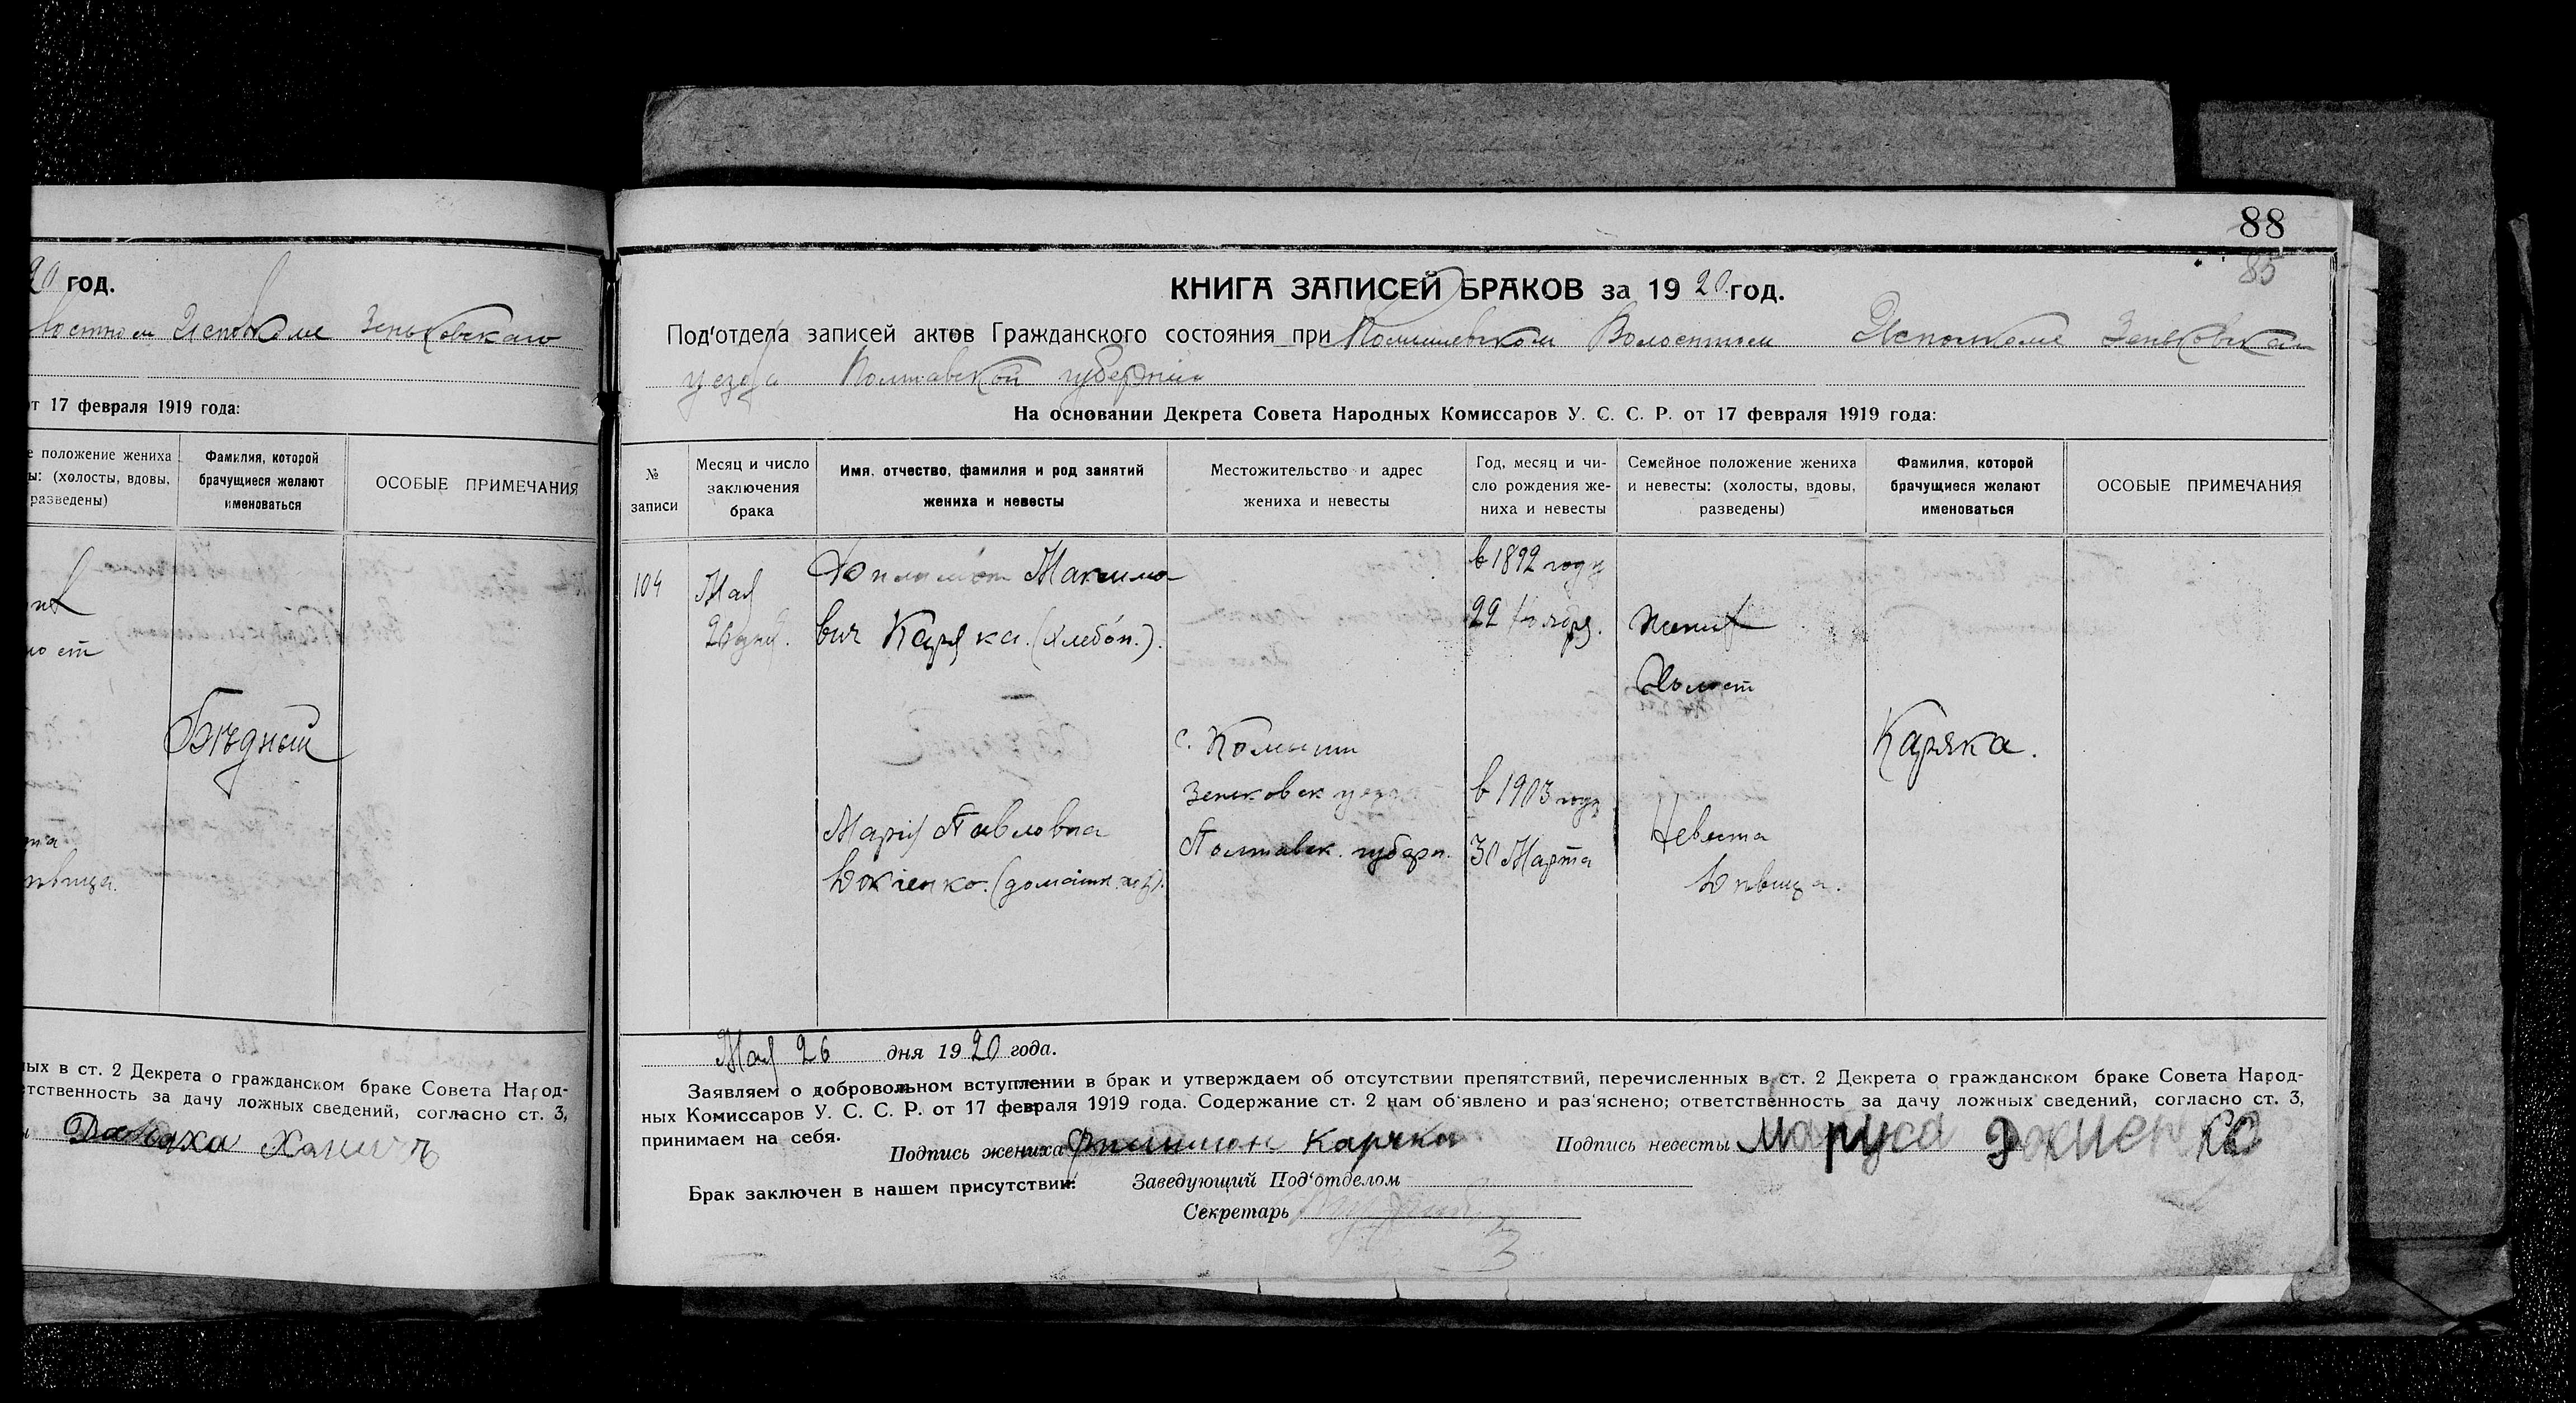 20 год.
Исполкоме Зеньковскаго
от 17 февраля 1919 года:
е положение жениха
ы: (холосты, вдовы,
разведены)
Фамилия, которой
брачущиеся желают
именоваться
ОСОБЫЕ ПРИМЕЧАНИЯ
Бѣдный
ных в ст. 2 Декрета о гражданском браке Совета Народ-
етственность за дачу ложных сведений, согласно ст. 3,
88
85
КНИГА ЗАПИСЕЙ БРАКОВ за 1920 год.
Под'отдела записей актов Гражданского состояния при Комышевском Волостном Исполкоме Зеньковскаго
уезда Полтавской губернии
На основании Декрета Совета Народных Комиссаров У. С. С. Р. от 17 февраля 1919 года:
№
записи
Месяц и число
заключения
брака
Имя, отчество, фамилия и род занятий
жениха и невесты
Местожительство и адрес
жениха и невесты
Год, месяц и чи-
сло рождения же-
ниха и невесты
Семейное положение жениха
и невесты: (холосты, вдовы,
разведены)
Фамилия, которой
брачущиеся желают
именоваться
ОСОБЫЕ ПРИМЕЧАНИЯ
104
Мая
26 дня.
Максимо
вич Каряка. (хлебоп.).
Марія Павловна
с. Комыши
Зеньковск уезда
Полтавск. губерн.
в 1892 году
22 Ноября.
в 1903 году
30 Марта
Жених
Холост
Невеста
Дѣвица.
Каряка.
Мая 26 дня 1920 года.
Заявляем о добровольном вступлении в брак и утверждаем об отсутствии препятствий, перечисленных в ст. 2 Декрета о гражданском браке Совета Народ-
ных Комиссаров У. С. С. Р. от 17 февраля 1919 года. Содержание ст. 2 нам об'явлено и раз'яснено; ответственность за дачу ложных сведений, согласно ст. 3,
принимаем на себя.
Подпись жениха Филимон Каряка
Подпись невесты Маруся
Брак заключен в нашем присутствии:
Заведующий Под'отделом
Секретарь